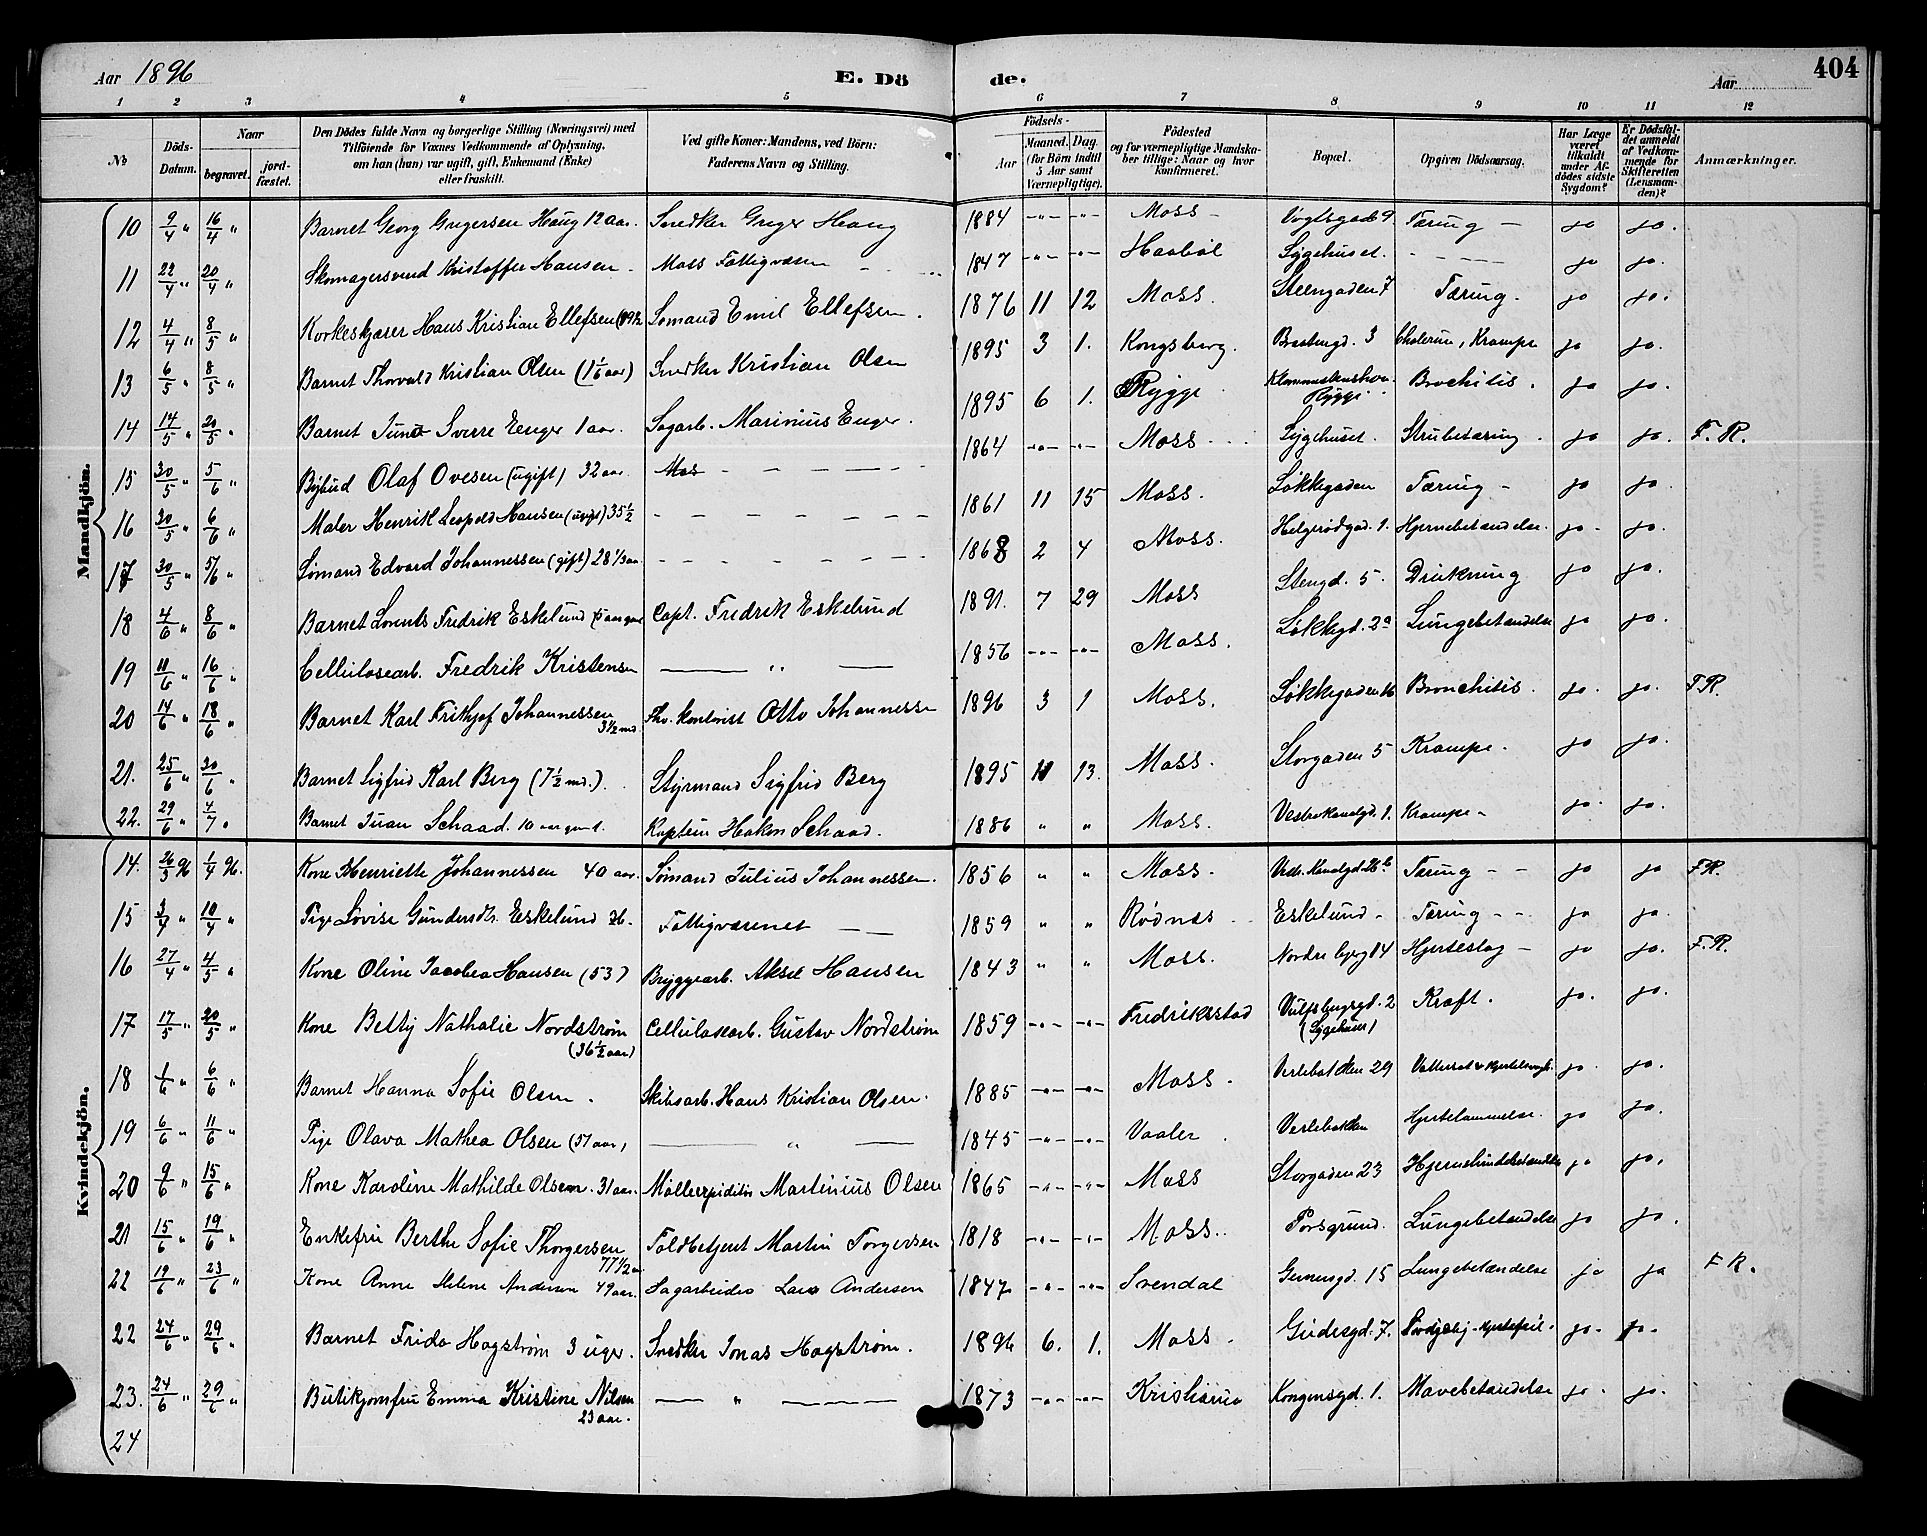 Aar 1896 E. Dö de. Aar 404
1 2 3 4 5 6 7 8 9 10 11 12
No Döds-Datum. Naar begravet. jord-fæstet. Den Dödes fulde Navn og borgerlige Stilling (Næringsvei) med Tilföiende for Voxnes Vedkommende af Oplysning, om han (hun) var ugift, gift, Enkemand (Enke) eller fraskilt. Ved gifte Koner: Mandens, ved Börn: Faderens Navn og Stilling. Födsels- Aar Maaned. Dag. (for Börn indtil 5 Aar samt Værnepligtige). Födested og for værnepligtige Mandskaber tillige: Naar og hvor konfirmeret. Bopæl. Opgiven Dödsaarsag. Har Læge været tilkaldt under Afdödes sidste Sygdom? Er Dödsfaldet anmeldt af Vedkommende for Skifteretten (Lensmanden)? Anmærkninger.
Mandkjön.
10 9/4 " 16/4 " Barnet Georg Gregersen Haug 12 aar. Snedker Greger Haug 1884 -"- -"- Moss - Vogtsgade 9 Tæring - ja ja.
11 22/4 " 20/4 " Skomagersvend Kristoffer Hansen - Moss Fattigvæsen - 1847 -"- -"- Haabøl Sygehuset. - - - - ja ja.
12 4/4 " 8/5 " Korkeskjærer Hans Kristian Ellefsen (19½ Sømand Emil Ellefsen. 1876 11 12 Moss. Steengaden 7 Tæring. ja ja.
13 6/5 " 8/5 " Barnet Thorvald Kristian Olsen (1 1/6 aar) Snedker Kristian Olsen 1895 3 1. Kongsberg. 3 Cholerine, Krampe ja ja.
14 14/5 " 20/5 " Barnet Sverre Enger 1 aar. Sagarb. Marinius Enger. 1895 6 1. Rygge Rygge Brochitis. ja ja.
15 30/5 " 5/6 " Bybud Olaf Ovesen (ugift) 32 aar. Mos - - - - 1864 -"- -"- Moss Sygehuset. Strubetæring. ja ja. F. R.
16 30/5 " 6/6 " Maler Henrik Leopold Hansen (ugift) 35½ - - - - - 1861 11 15 Moss. Løkkegaden Tæring - ja ja.
17 30/5 " 5/6 " Sømand Edvard Johannessen (gift) 28 1/3 aar - - - - - 1868 2 4 Moss. Helgerødgad. 1. Hjernebetændelse. ja ja.
18 4/6 " 8/6 " Barnet Lorents Fredrik Eskelund Capt. Fredrik Eskelund 1891. 7 29 Moss Stengd. 5. Drukning ja ja.
19 11/6 " 16/6 " Cellulosearb. Fredrik Kristensen — " — 1856 -"- -"- Moss. Løkkegd. 2a Lungebetændelse ja ja.
20 14/6 " 18/6 " Barnet Karl Frithjof Johannessen 3½ md. Otto Johannessen 1896 3 1 Moss. Løkkegaden 16 Bronchitis. ja ja. F.R.
21. 25/6 " 30/6 " Barnet Sigfrid Karl Berg (7½ md.). Styrmand Sigfrid Berg 1895 11 13. Moss. Storgaden 5 Krampe. ja ja.
22. 29/6 " 4/7 " Barnet Schaad. 10 aar Kaptein Hakon Schaad. 1886 " " Moss. Vestrekanalgd. 1. Krampe - ja ja.
Kvindekjön.
14. 26/3 96 1/4 96. Kone Henriette Johannessen 40 aar. Sømand Julius Johannessen. 1856 " " Moss. Vestr. Kanalgd. 26b Tæring - - ja ja F.R.
15 3/4 " 10/4 " Pige Lovise Gundersdtr. Eskelund 36. Fattigvæsenet — — 1859 " " Rødnæs Eskelund - Tæring - - ja ja.
16 27/4 " 4/5 " Kone Oline Jacobea Hansen (53) Bryggearb. Aksel Hansen 1843 " " Moss. Nordre 14 Hjerteslag - ja ja. F. R.
17 17/5 " 20/5 " Kone Betty Nathalie Nordstrøm (36½ aar) Cellulosearb. Gustav Nordstrøm 1859 -"- -"- Fredriksstad Vulfsbergsgd. 2 (Sygehuset) Kræft. ja. ja.
18 1/6 " 6/6 " Barnet Hanna Sofie Olsen. Skibsarb. Hans Kristian Olsen. 1885 -"- -"- Moss. Verlebakken 29 ja. ja.
19 6/6 " 11/6 " Pige Olava Mathea Olsen (51 aar) — " — 1845 -"- -"- Vaaler. Verlebakken Hjertelammelse. ja ja.
20 9/6 " 15/6 " Kone Karoline Mathilde Olsen. 31 aar. Martinius Olsen 1865 -"- -"- Moss Storgaden 23 Hjernehindebetændelse ja ja.
21 15/6 " 19/6 " Enkefru Berthe Sofie Thorgersen 77½ Toldbetjent Martin Torgersen 1818 -"- -"- Moss. Porsgrund. Lungebetændelse ja ja.
22 19/6 " 23/6 " Kone Anne Helene Andersen 49 aar. Sagarbeider Lars Andersen 1847 -"- -"- Svendal Gernersgd. 15 Lungebetændelse ja ja F. R.
22 24/6 " 29/6 " Barnet Frida Hagstrøm 3 uger. Snedker Jonas Hagstrøm. 1896 6. 1. Moss. Gudesgd. 7. Hjertefeil. ja. ja.
23. 24/6 " 29/6 " Butikjomfru Emma Kristine Nilsen 23 aar. — " — — — 1873 -"- -"- Kristiania Kongensgd. 1. Mavebetændelse ja. ja.
24